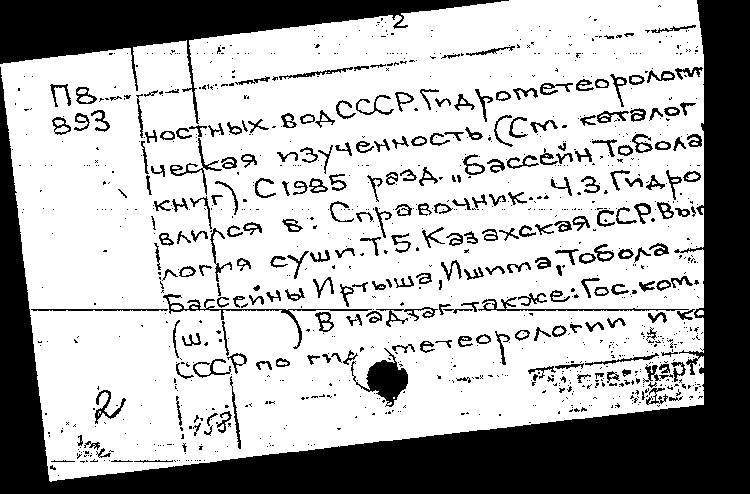 2
П8
893
ностных вод СССР. Гидрометеорологи
ческая изученность. (См. каталог
книг). С 1985 разд. „Бассейн Тобола
влился в: Справочник... Ч.3. Гидро
логия суши. Т.5. Казахская ССР. Вып
Бассейны Иртыша, Ишима, Тобола
(ш.: ). В надзаг. также: Гос. ком.
СССР по гид метеорологии и ко
карт.
2